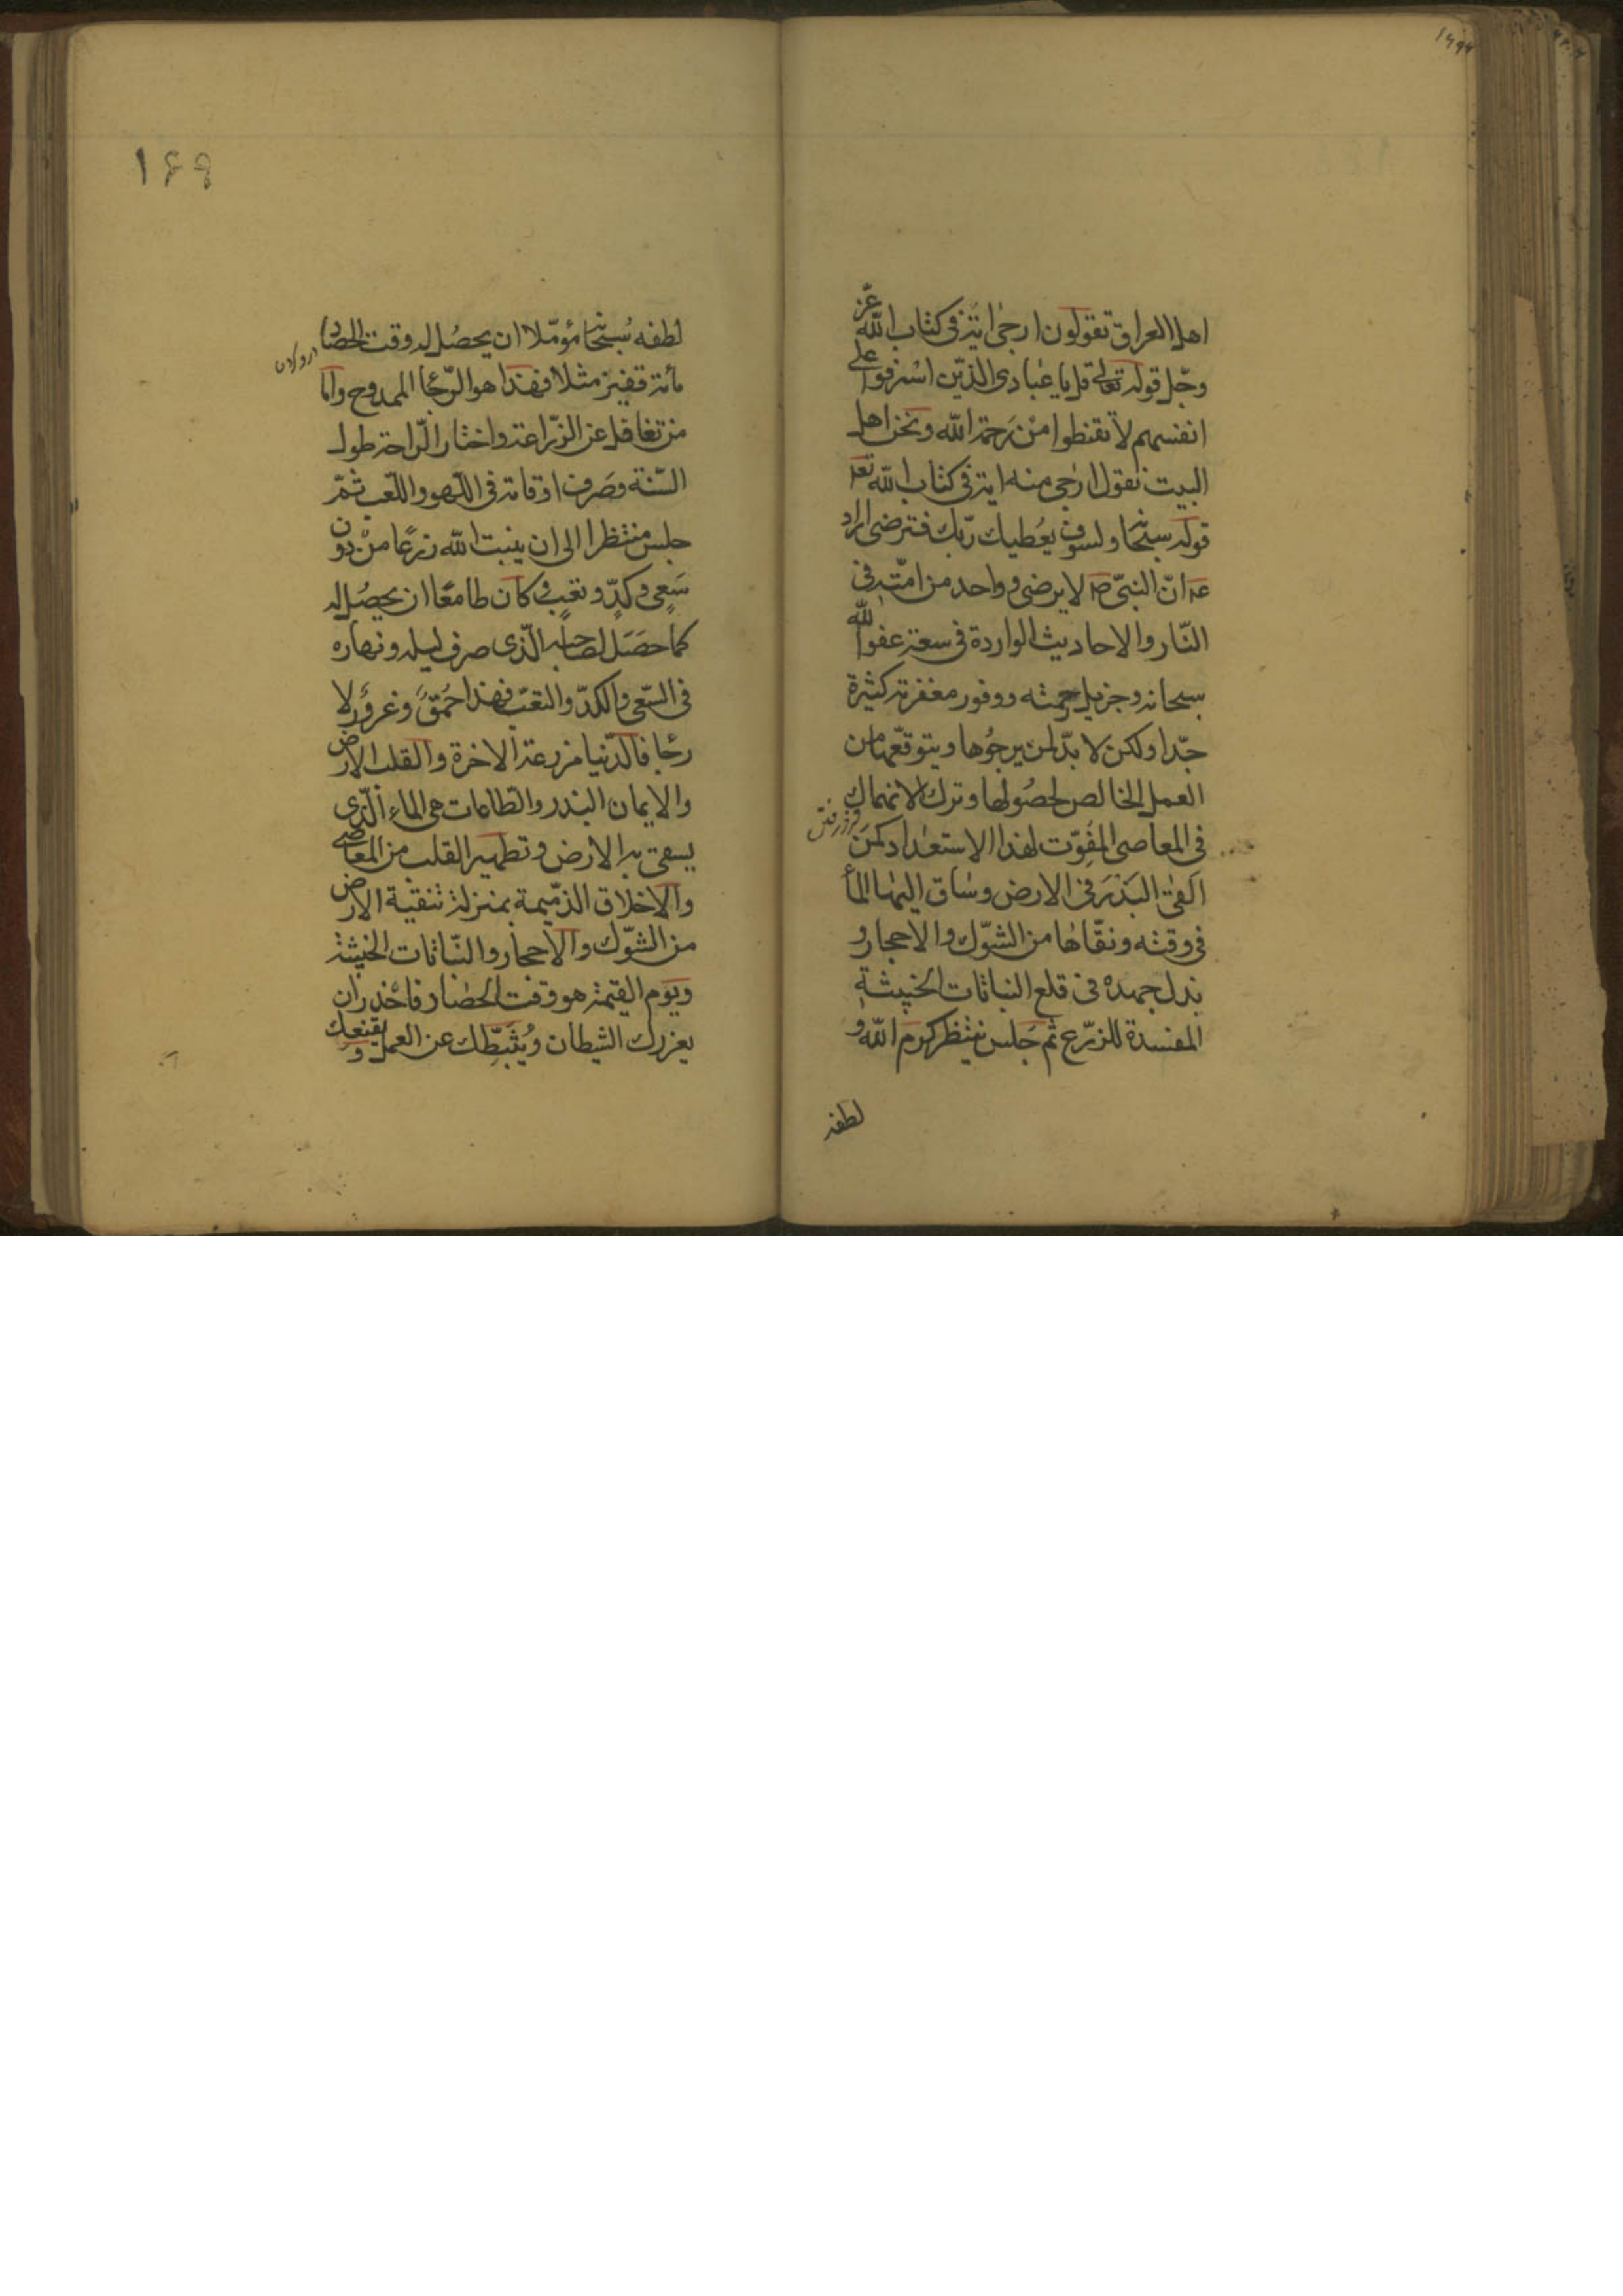 اهل العراق تقولون ارجى اية فى كتاب الله عزّ
وجل قوله تعالى قل يا عبادى الذين اسرفوا على
انفسهم لا تقنطوا من رحمة الله ونحن اهل
البيت نقول ارجى منه اية فى كتاب الله تعا
قوله سبحا ولسوف يعطيك ربّك فترضى اراد
عه انّ النبىّ صا لا يرضى وواحد من امّته فى
النّار والاحاديث الواردة فى سعة عفو الله
سبحانه وجزيل رحمته ووفور مغفرته كثيرة
جدّا ولكن لا بدّ لمن يرجوها ويتوقّعها من
العمل الخالص لحصولها وترك الانهماك
فرو رفتن
فى المعاصى المفوّت لهذا الاستعداد كمن
القى البذر فى الارض وساق اليها الماء
فى وقته ونقّاها من الشوك والاحجار و
بذل جهده فى قلع النباتات الخبيثة
المفسدة للزرع ثم جلس ينتظر كرم الله و
لطفه
١۶٩
لطفه سبحا مؤمّلا ان يحصل له وقت الحصاد
درو كردن
مأة قفيز مثلا فهذا هو الرّجا الممدوح وامّا
من تغافل عن الزّراعة واختار الرّاحة طول
السّنة وصرف اوقاته فى اللّهو واللّعب ثمّ
جلس منتظرا الى ان ينبت الله زرعا من دون
سعى وكدّ وتعب وكان طامعا ان يحصل له
كما حصل لصاحبه الّذى صرف ليله ونهاره
فى السّعى والكدّ والتعب فهذا حمق وغرور لا
رجا فالدّنيا مزرعة الاخرة والقلب الارض
والايمان البذر والطّاعات هى الماء الّذى
يسقى به الارض وتطهير القلب من المعاصى
والاخلاق الذّميمة بمنزلة تنقية الارض
من الشوك والاحجار والنّباتات الخبيثة
ويوم القيمة هو وقت الحصاد فاحذر ان
يغرك الشيطان ويثبّطك عن العمل ويقنعك